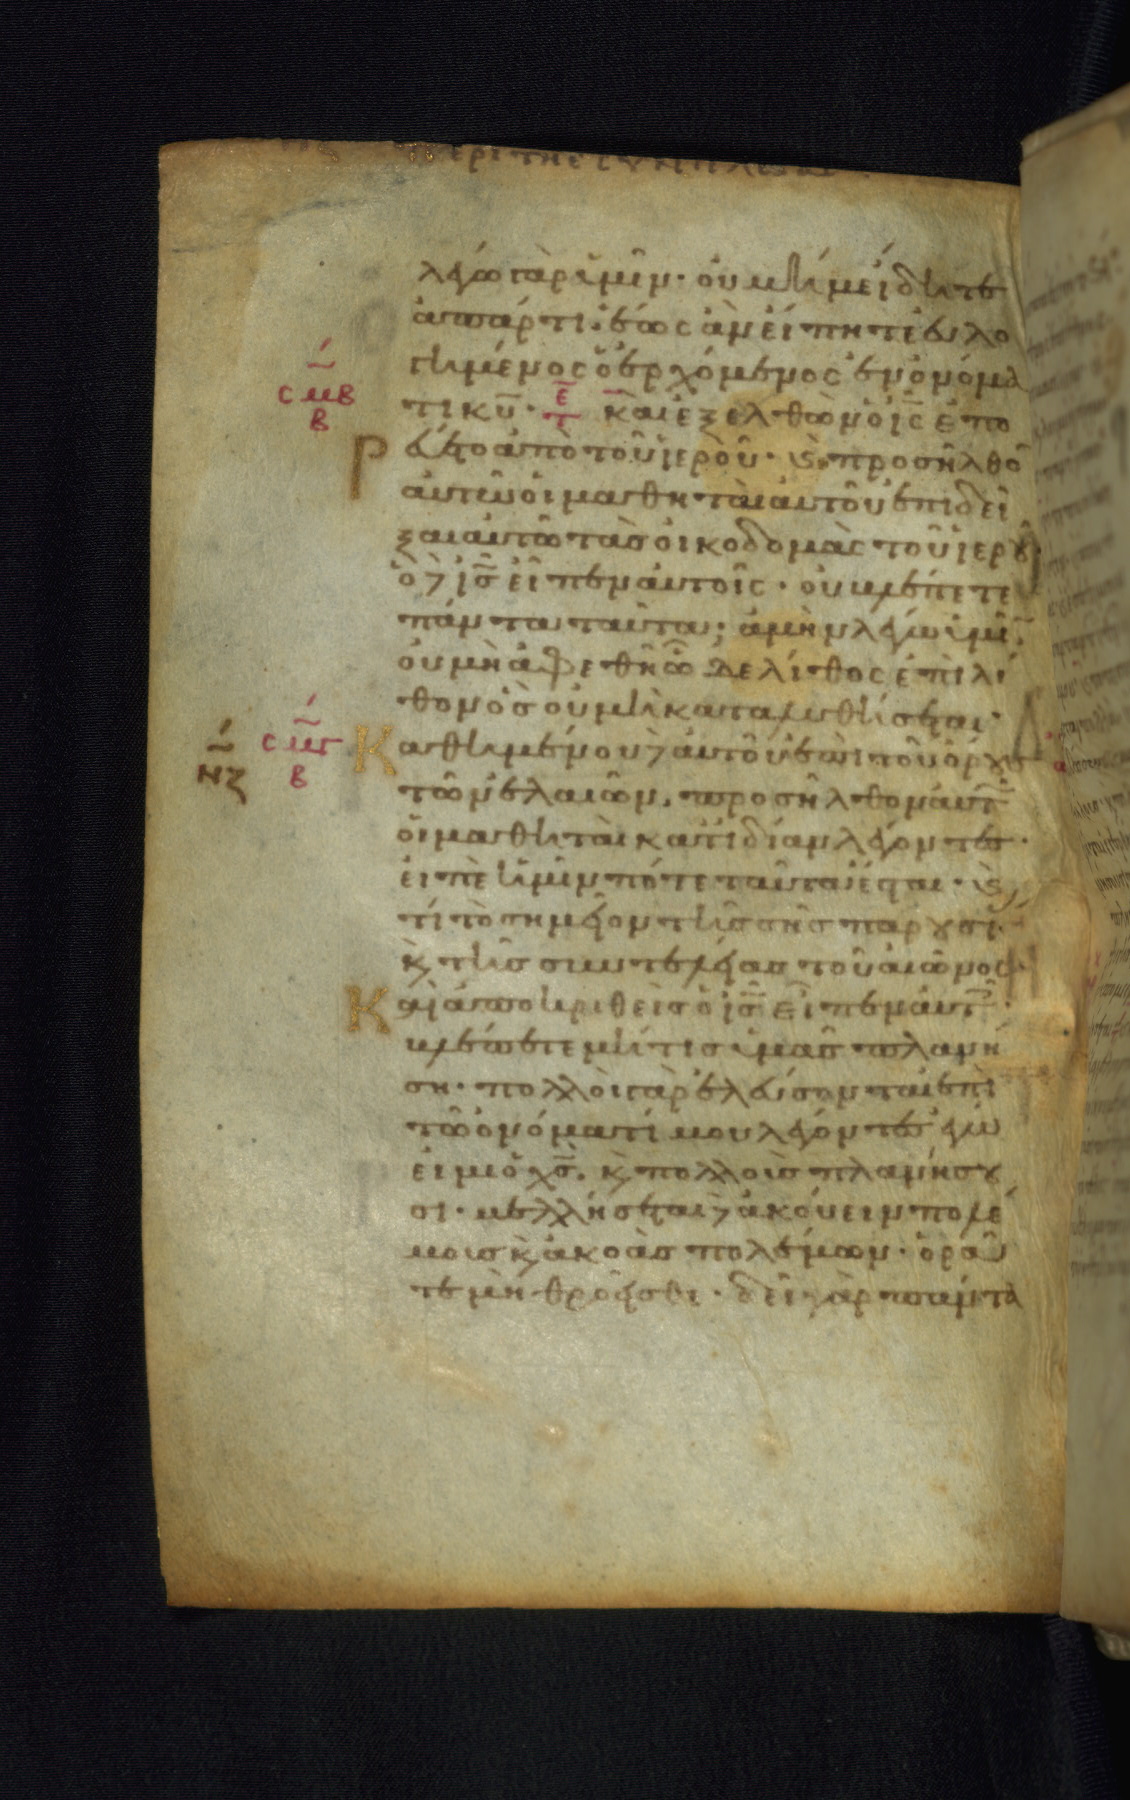 περὶ τῆς συντελείας
λέγω γὰρ ὑμῖν· οὐ μή με ἴδητε
ἀπάρτι· ἕως ἂν εἴπητε εὐλο
γημένος ὁ ἐρχόμενος ἐν ὀνόμα
σμβ
β
τι κ̅υ̅· ε̅ τ καὶ ἐξελθὼν ὁ ι̅ς̅ ἐπο
ρεύετο ἀπὸ τοῦ ἱεροῦ· ϗ προσῆλθο̅
αὐτῶ οἱ μαθηταὶ αὐτοῦ ἐπιδεῖ
ξαι αὐτῶ τὰς οἰκοδομὰς τοῦ ἱεροῦ·
ὁ δὲ ι̅ς̅ εἶπεν αὐτοῖς· οὐ βλέπετε
πάντα ταῦτα; ἀμὴν λέγω ὑμῖ̅·
οὐ μὴ ἀφεθῆ ὧδε λίθος ἐπὶ λί
θον ὃς οὐ μὴ καταλυθήσεται·
νζ
σμγ
β
Καθημένου δὲ αὐτοῦ ἐπὶ τοῦ ὄρους
τῶν ἐλαιῶν, προσῆλθον αὐτῶ
οἱ μαθηταὶ κατϊδίαν λέγοντες·
εἰπὲ ἡμῖν πότε ταῦτα ἔσται· ϗ
τί τὸ σημεῖον τῆς σῆς παρουσί
ϗ τῆς συντελείας τοῦ αἰῶνος·
Καὶ ἀποκριθεὶς ὁ ι̅ς̅ εἶπεν αὐτοῖς·
βλέπετε μή τις ὑμᾶς πλανή
ση· πολλοὶ γὰρ ἐλεύσονται ἐπὶ
τῶ ὀνόματί μου λέγοντες ἐγώ
εἰμι ὁ χ̅ς̅. ϗ πολλοὺς πλανήσου
σι· μελλήσεται δὲ ἀκούειν πολέ
μους ϗ ἀκοὰς πολέμων· ὁρᾶ
τε μὴ θροεῖσθε· δεῖ γὰρ πάντα